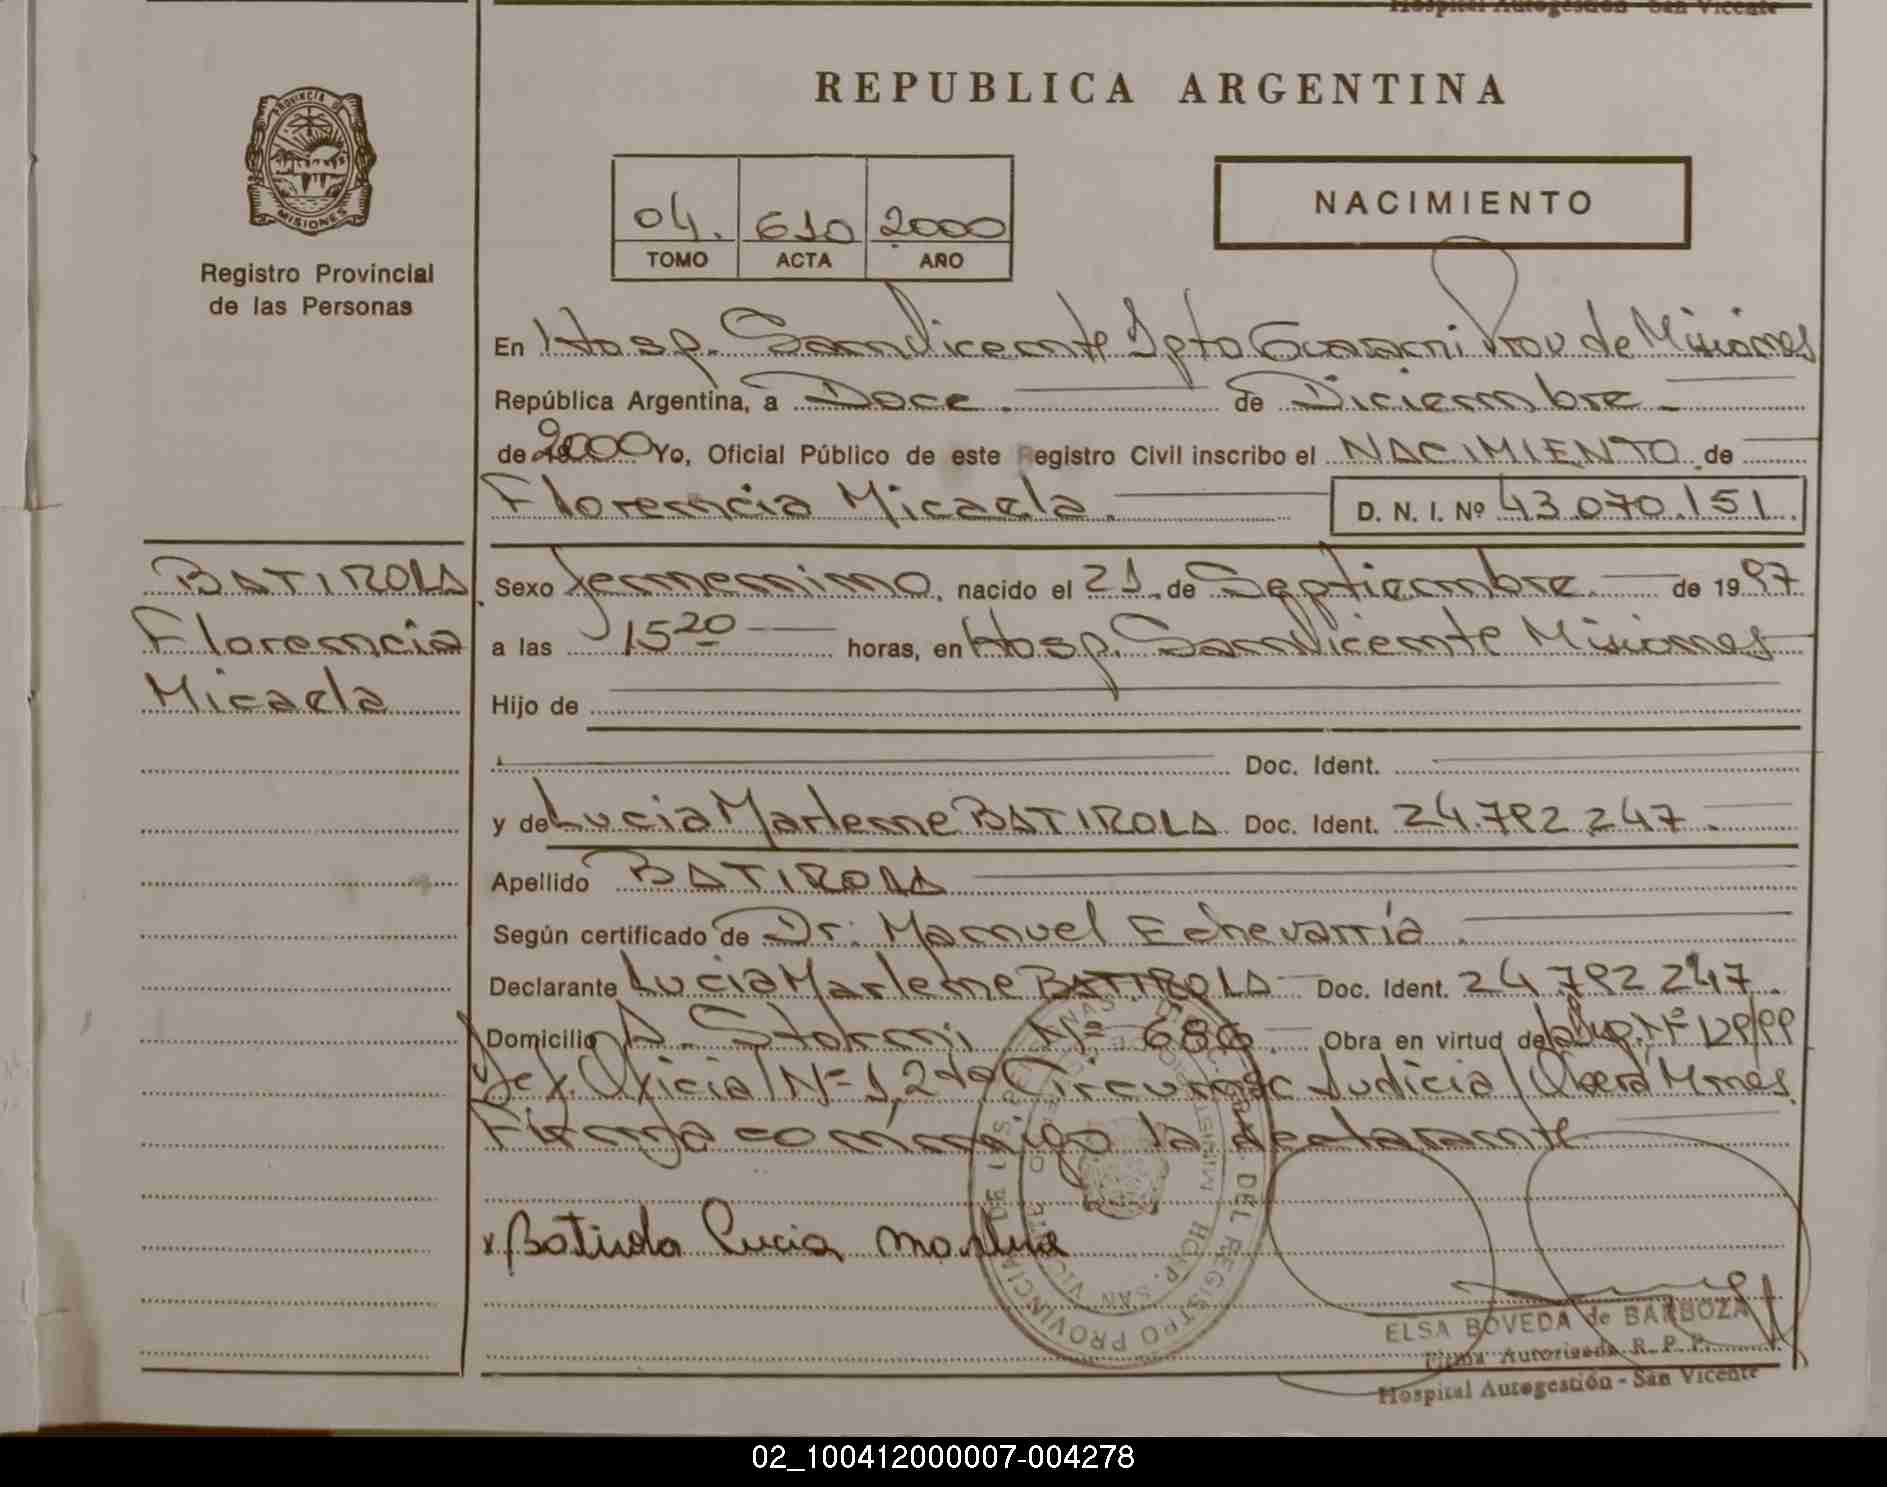 Hospital Autogestión San Vicente
REPUBLICA ARGENTINA
PROVINCIA DE
MISIONES
Registro Provincial
de las Personas
NACIMIENTO
04. 610 2000
TOMO ACTA AÑO
En Hosp. San Vicente Dpto Guarani Prov de Misiones
República Argentina, a Doce. de Diciembre
de 2000 Yo, Oficial Público de este Registro Civil inscribo el NACIMIENTO de
Florencia Micaela. D. N. I. Nº 43.070.151.
BATIROLA
Florencia
Micaela
Sexo femenino, nacido el 21 de Septiembre. de 1997
a las 15 20 horas, en Hosp. San Vicente Misiones
Hijo de
Doc. Ident.
y de Lucia Marlene BATIROLA Doc. Ident. 24.792.247.
Apellido BATIROLA
Según certificado de Dr. Manuel Echevarría.
Declarante Lucia Marlene BATIROLA Doc. Ident. 24.792.247.
Domicilio A. Storni Nº 686. Obra en virtud de la Nº
Oficial Nº 1, 2da Circunsc Judicial Oberá Mnes.
Firma conmigo la declarante
Batirola Lucia Marlene
REGISTRO PROVINCIAL DE LAS
HOSP. SAN VICENTE
ELSA BOVEDA de BARBOZA
Firma Autorizada R. P. P.
Hospital Autogestión - San Vicente
02_100412000007-004278